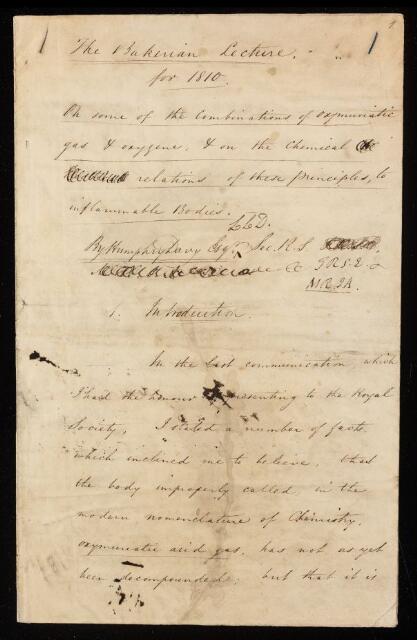 The Bakerian Lecture.
for 1810.
On some of the Combinations of oxymuriatic
gas & oxygene, & on the chemical
relations of these principles, to
inflammable Bodies.
LLD.
By Humphry Davy Esqr. Sec. R. S
F.R.S.E. &
M.R.I.A.
1. Introduction.
In the last communication which
I had the honour of presenting to the Royal
Society, I stated a number of facts
which inclined me to believe, that
the body improperly called in the
modern nomenclature of Chemistry,
oxymuriatic acid gas, has not as yet
been decompounded; but that it is